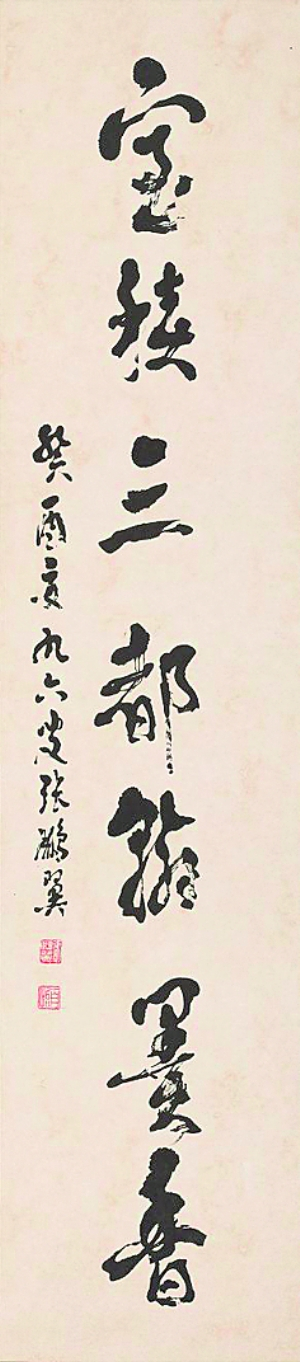 室積三都翰墨香
癸酉夏九六叟張鵬翼